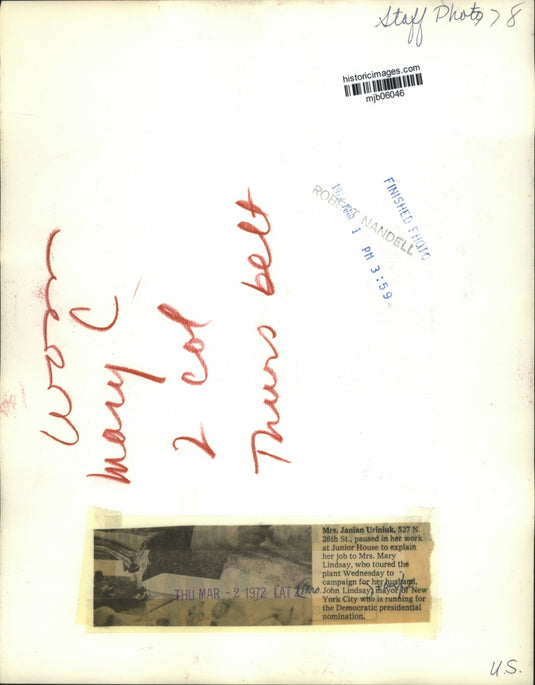 Staff Photo 78
historicimages.com
mjb06046
FINISHED PHOTO
ROBERT NANDELL
1 PM 3:59
Mary C
2 col
Thurs belt
Mrs. Janian Uriniuk, 527 N.
26th St., paused in her work
at Junior House to explain
her job to Mrs. Mary
Lindsay, who toured the
plant Wednesday to
campaign for her husband,
John Lindsay, mayor of New
York City who is running for
the Democratic presidential
nomination.
THU MAR - 2 1972 LAT
U.S.